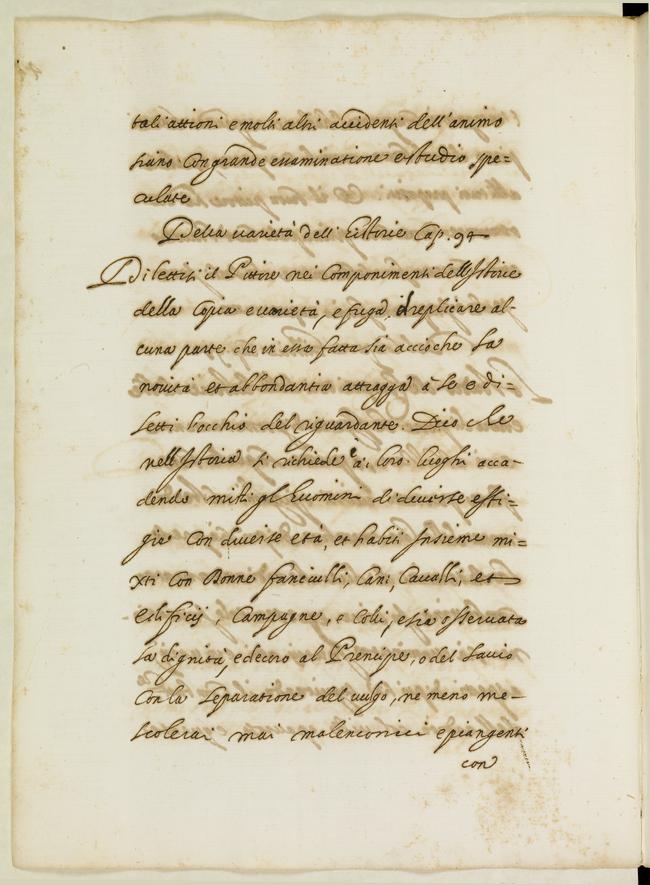 tali attioni e molti altri accidenti dell'animo
siano con grande essaminatione e studio spe=
culate
Della varietà dell'Eistorie Cap. 94
Dilettisi il Pittore nei Componimenti dell'Istorie
della Copia e varietà, e fuga, il replicare al=
cuna parte che in essa fatta sia accioche la
novità et abbondantia attragga à se e di=
letti l'occhio del riguardante. Dico che
nell'Istoria si richiede è ai loro luoghi acca=
dendo misti gl'Huomini di diverse effi=
gie con diverse età, et habiti Insieme mi=
xti con Donne fanciulli, Cani, Cavalli, et
Edificij, Campagne, e Colli, e sia osservata
la dignità, e decuro al Prencipe, o del savio
con la separatione del vulgo, ne meno me=
scolerai mai malenconici e piangenti
con